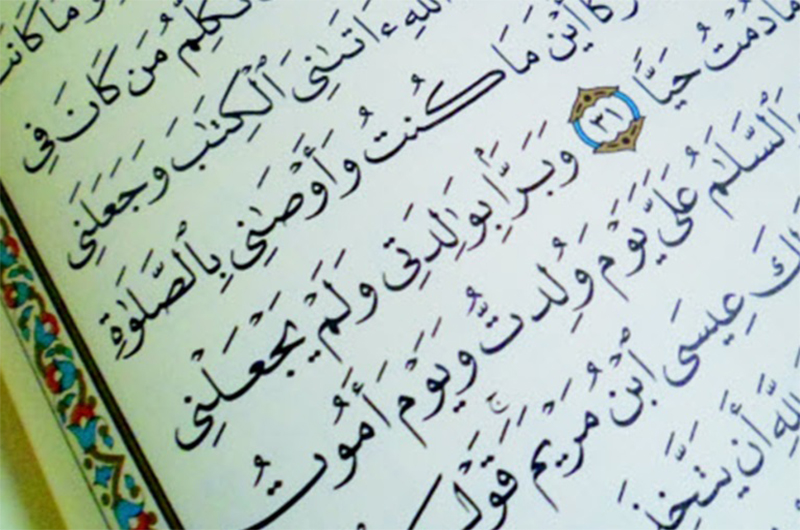 وَمَا كَانَتْ
نُكَلِّمُ مَن كَانَ فِى
ٱللَّهِ ءَاتَىٰنِىَ ٱلْكِتَٰبَ وَجَعَلَنِى
أَيْنَ مَا كُنتُ وَأَوْصَٰنِى بِٱلصَّلَوٰةِ
مَا دُمْتُ حَيًّا ٣١ وَبَرًّۢا بِوَٰلِدَتِى وَلَمْ يَجْعَلْنِى
وَٱلسَّلَٰمُ عَلَىَّ يَوْمَ وُلِدتُّ وَيَوْمَ أَمُوتُ
عِيسَى ٱبْنُ مَرْيَمَ ۚ قَوْلَ
لِلَّهِ أَن يَتَّخِذَ